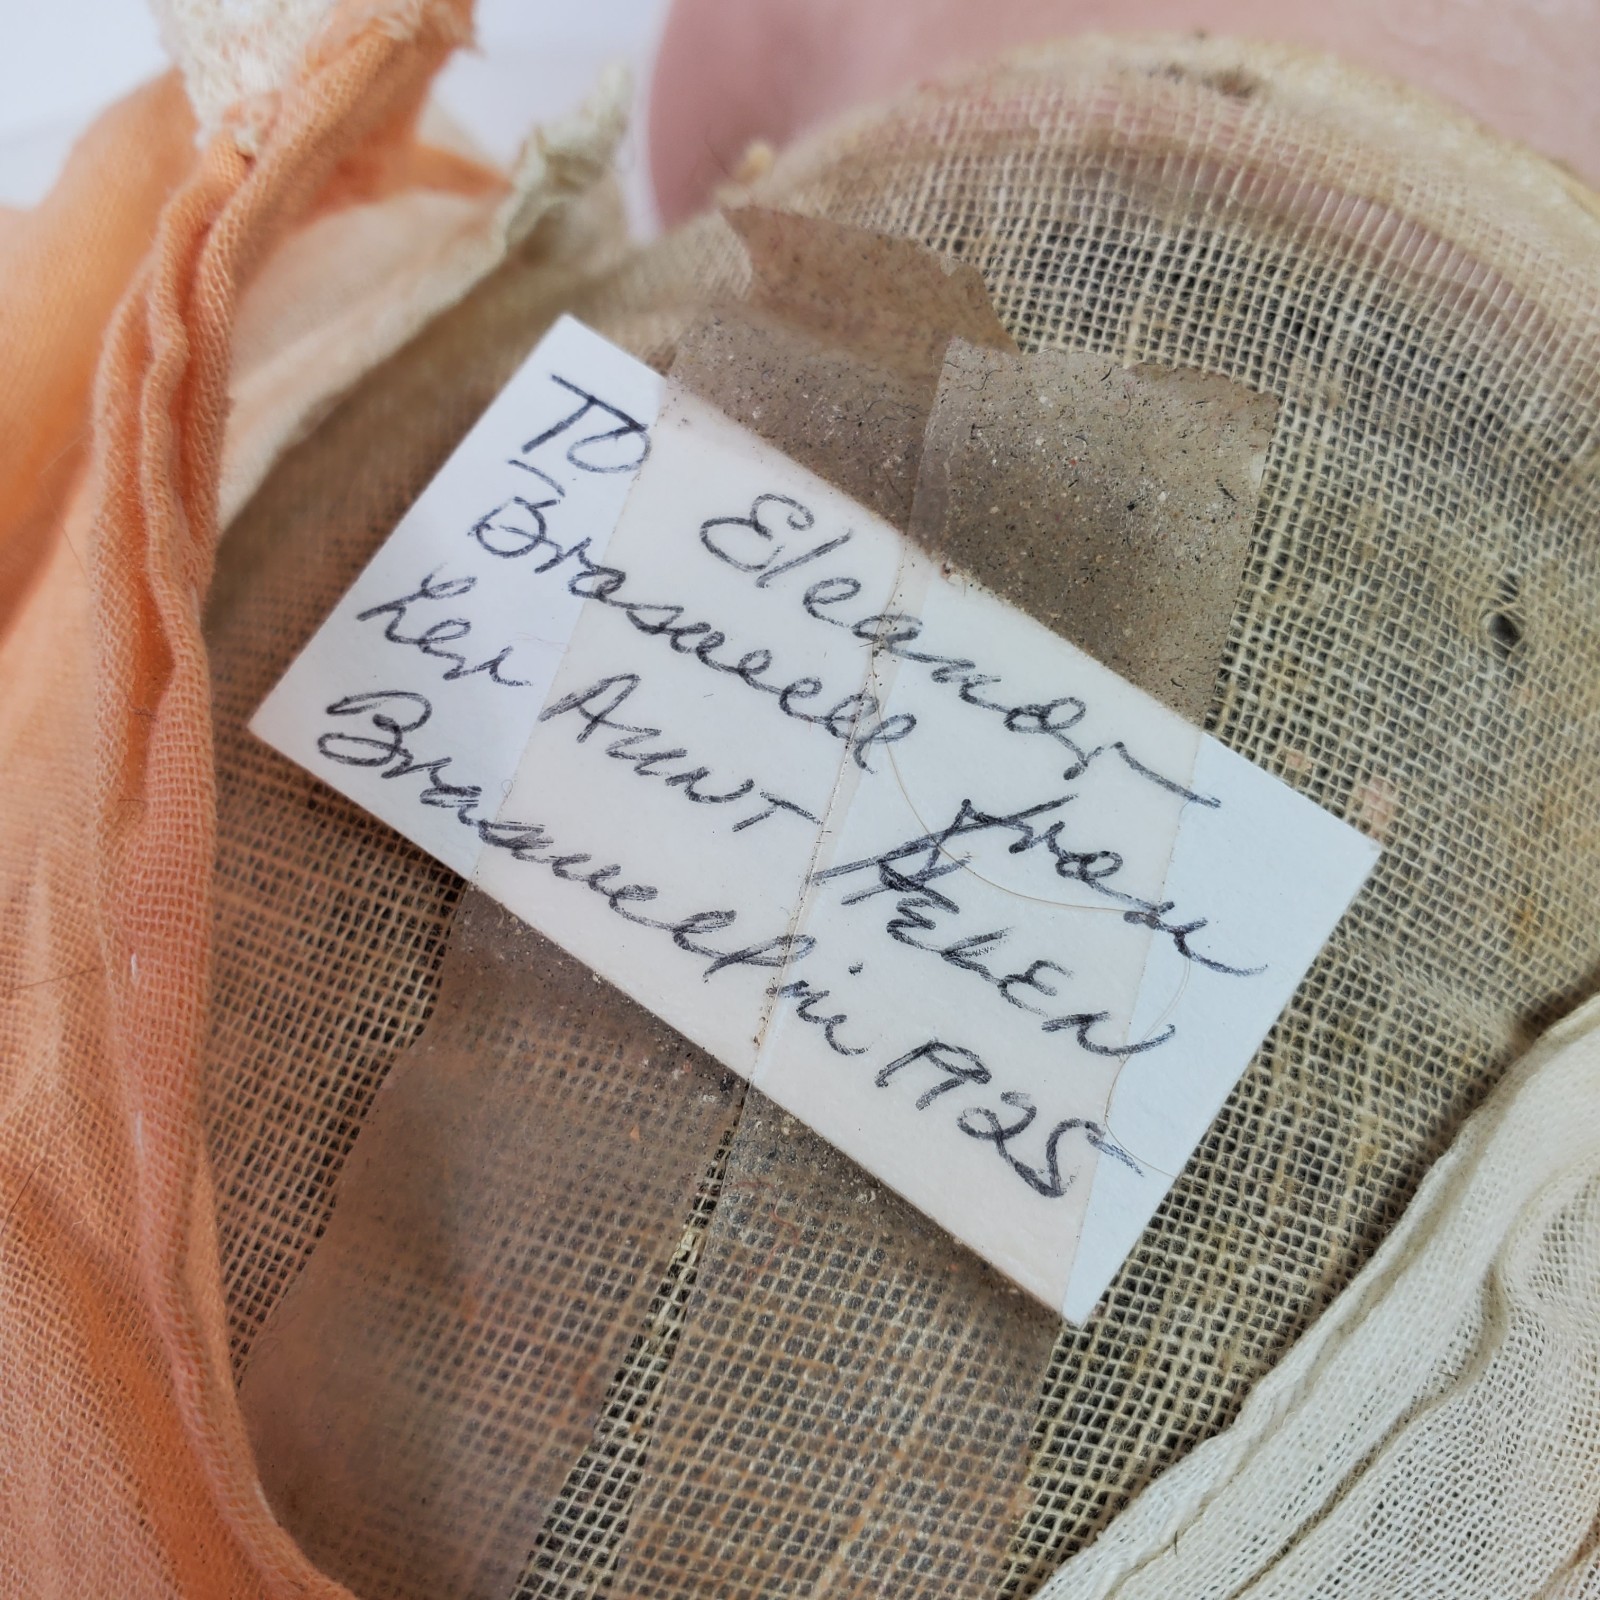 TO Eleanor
Braswell from
her AUNT HELEN
Braswell in 1925